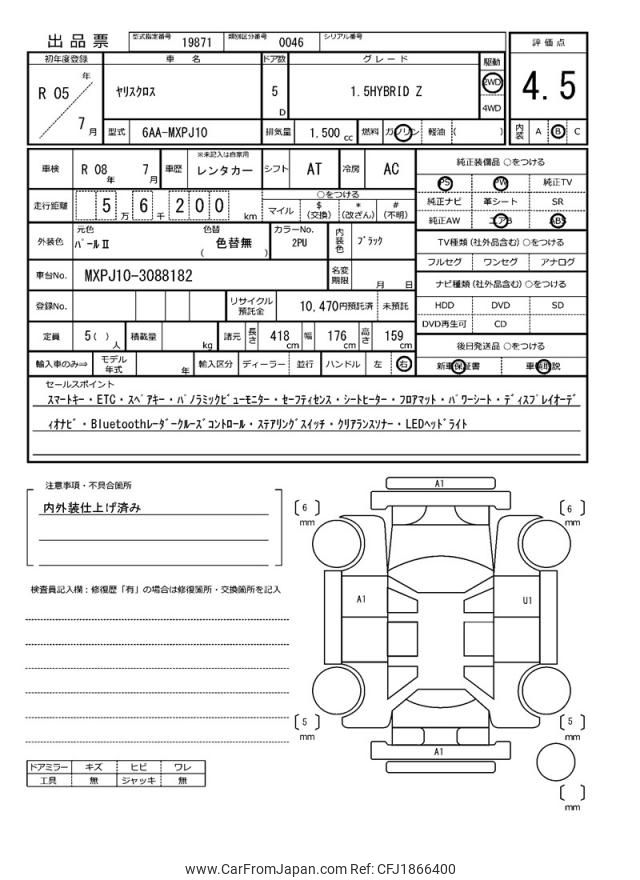 出品票 型式指定番号 19871 類別区分番号 0046 シリアル番号
評価点
初年度登録 車名 ドア数 グレード 駆動
R 05 年 7 月 ﾔﾘｽｸﾛｽ 5 D 1.5HYBRID Z 2WD 4WD
4.5
型式 6AA-MXPJ10 排気量 1.500 cc 燃料 ガソリン 軽油 ( )
内装 A B C
車検 R 08 年 7 月 車歴 ※未記入は自家用 レンタカー シフト AT 冷房 AC
走行距離 5 万 6 千 2 0 0 km
○をつける
マイル $ (交換) * (改ざん) # (不明)
外装色 元色 ﾊﾟｰﾙⅡ 色替 色替無 ( ) カラーNo. 2PU 内装色 ﾌﾞﾗｯｸ
車台No. MXPJ10-3088182 名変期限 月 日
登録No. リサイクル預託金 10,470円預託済 未預託
定員 5( ) 人 積載量 kg 諸元 長さ 418 cm 幅 176 cm 高さ 159 cm
輸入車のみ⇨ モデル年式 年 輸入区分 ディーラー 並行 ハンドル 左 右
純正装備品 ○をつける
PS PW 純正TV
純正ナビ 革シート SR
純正AW エアB ABS
TV種類(社外品含む) ○をつける
フルセグ ワンセグ アナログ
ナビ種類(社外品含む) ○をつける
HDD DVD SD
DVD再生可 CD
後日発送品 ○をつける
新車保証書 車輌取説
セールスポイント
ｽﾏｰﾄｷｰ・ETC・ｽﾍﾟｱｷｰ・ﾊﾟﾉﾗﾐｯｸﾋﾞｭｰﾓﾆﾀｰ・ｾｰﾌﾃｨｾﾝｽ・ｼｰﾄﾋｰﾀｰ・ﾌﾛｱﾏｯﾄ・ﾊﾟﾜｰｼｰﾄ・ﾃﾞｨｽﾌﾟﾚｲｵｰﾃﾞ
ｨｵﾅﾋﾞ・Bluetoothﾚｰﾀﾞｰｸﾙｰｽﾞｺﾝﾄﾛｰﾙ・ｽﾃｱﾘﾝｸﾞｽｲｯﾁ・ｸﾘｱﾗﾝｽｿﾅｰ・LEDﾍｯﾄﾞﾗｲﾄ
注意事項・不具合箇所
内外装仕上げ済み
検査員記入欄:修復歴「有」の場合は修復箇所・交換箇所を記入
ドアミラー キズ ヒビ ワレ
工具 無 ジャッキ 無
A1
〔 6 〕 mm
〔 6 〕 mm
A1
U1
〔 5 〕 mm
〔 5 〕 mm
A1
〔 〕 mm
www.CarFromJapan.com Ref: CFJ1866400